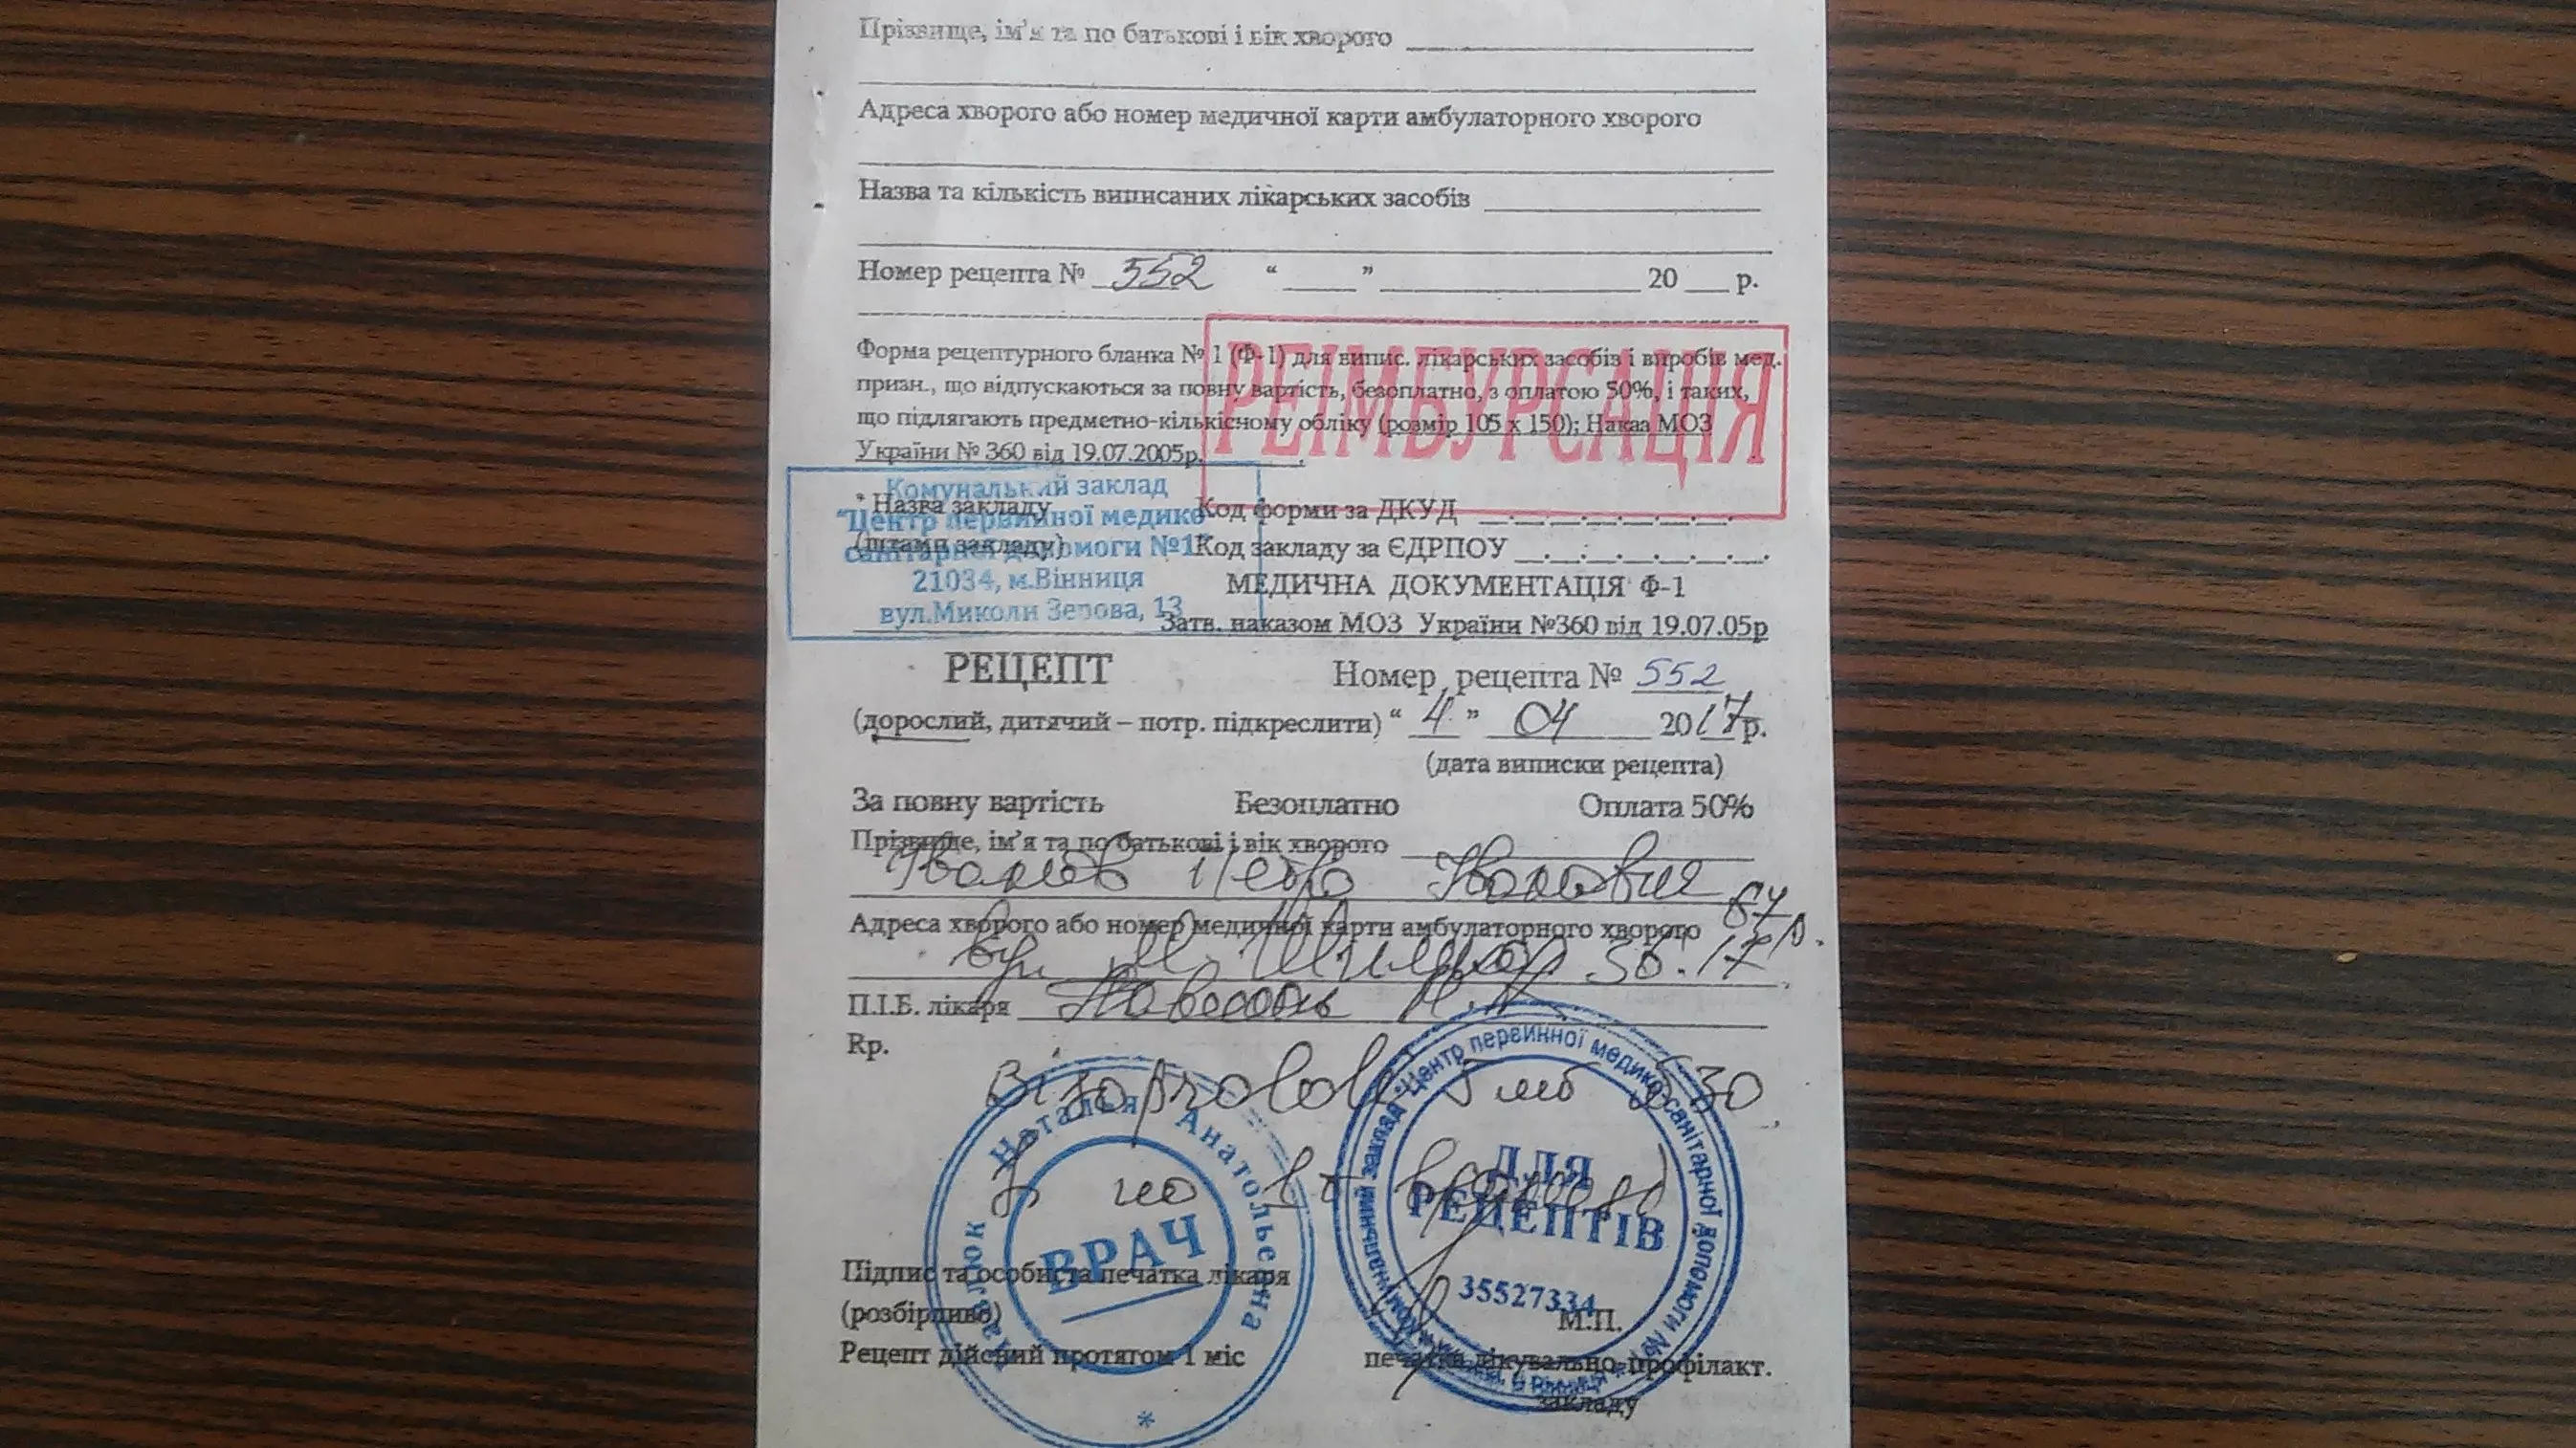 Прізвище, ім'я та по батькові і вік хворого
Адреса хворого або номер медичної карти амбулаторного хворого
Назва та кількість виписаних лікарських засобів
Номер рецепта № 552 “ ” 20 р.
Форма рецептурного бланка № 1 (Ф-1) для випис. лікарських засобів і виробів мед.
призн., що відпускаються за повну вартість, безоплатно, з оплатою 50%, і таких,
що підлягають предметно-кількісному обліку (розмір 105 х 150); Наказ МОЗ
України № 360 від 19.07.2005р.
РЕІМБУРСАЦІЯ
Комунальний заклад
"Центр первинної медико
санітарної допомоги №1"
21034, м.Вінниця
вул.Миколи Зерова, 13
* Назва закладу
(штамп закладу)
Код форми за ДКУД
Код закладу за ЄДРПОУ
МЕДИЧНА ДОКУМЕНТАЦІЯ Ф-1
Затв. наказом МОЗ України №360 від 19.07.05р
РЕЦЕПТ Номер рецепта № 552
(дорослий, дитячий – потр. підкреслити) “ 4 ” 04 2017р.
(дата виписки рецепта)
За повну вартість Безоплатно Оплата 50%
Прізвище, ім'я та по батькові і вік хворого
Іванов Петро Іванович
Адреса хворого або номер медичної карти амбулаторного хворого
вул. М. 36. 17
П.І.Б. лікаря
Rp.
Bisoprolol 5 мг 30
по 1 т
Наталья Анатольевна
ВРАЧ
Комунальний заклад "Центр первинної медико-санітарної допомоги №1"
ДЛЯ
РЕЦЕПТІВ
35527334
Підпис та особиста печатка лікаря
(розбірливо)
М.П.
Рецепт дійсний протягом 1 міс
печатка лікувально-профілакт.
закладу